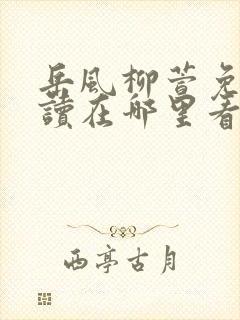 岳風柳萱免
讀在哪里看
西亭古月